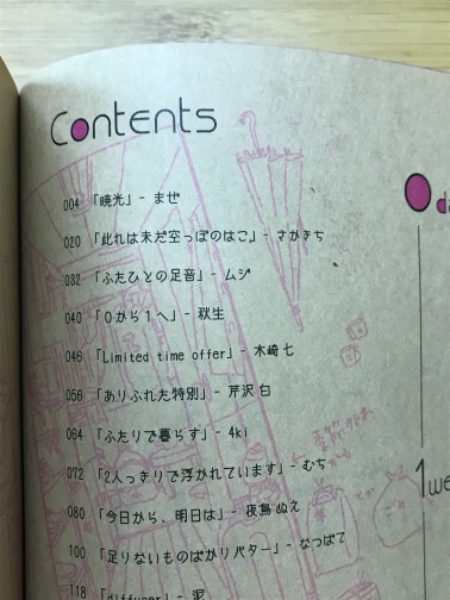 Contents
004 「暁光」- まぜ
020 「此れは未だ空っぽのはこ」- さかきち
032 「ふたひとの足音」- ムジ
040 「0から1へ」- 秋生
046 「Limited time offer」- 木崎 七
056 「ありふれた特別」- 芹沢 白
064 「ふたりで暮らす」- 4ki
072 「2人っきりで浮かれています」- むち
080 「今日から、明日は」- 夜鳥 ぬえ
100 「足りないものばかりバター」- なつばて
118 「diffuser」- 泥
da
1we